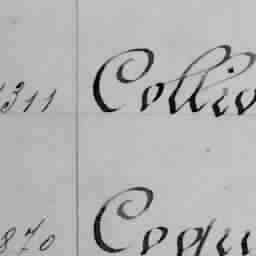 1311 Collio
870 Coqu